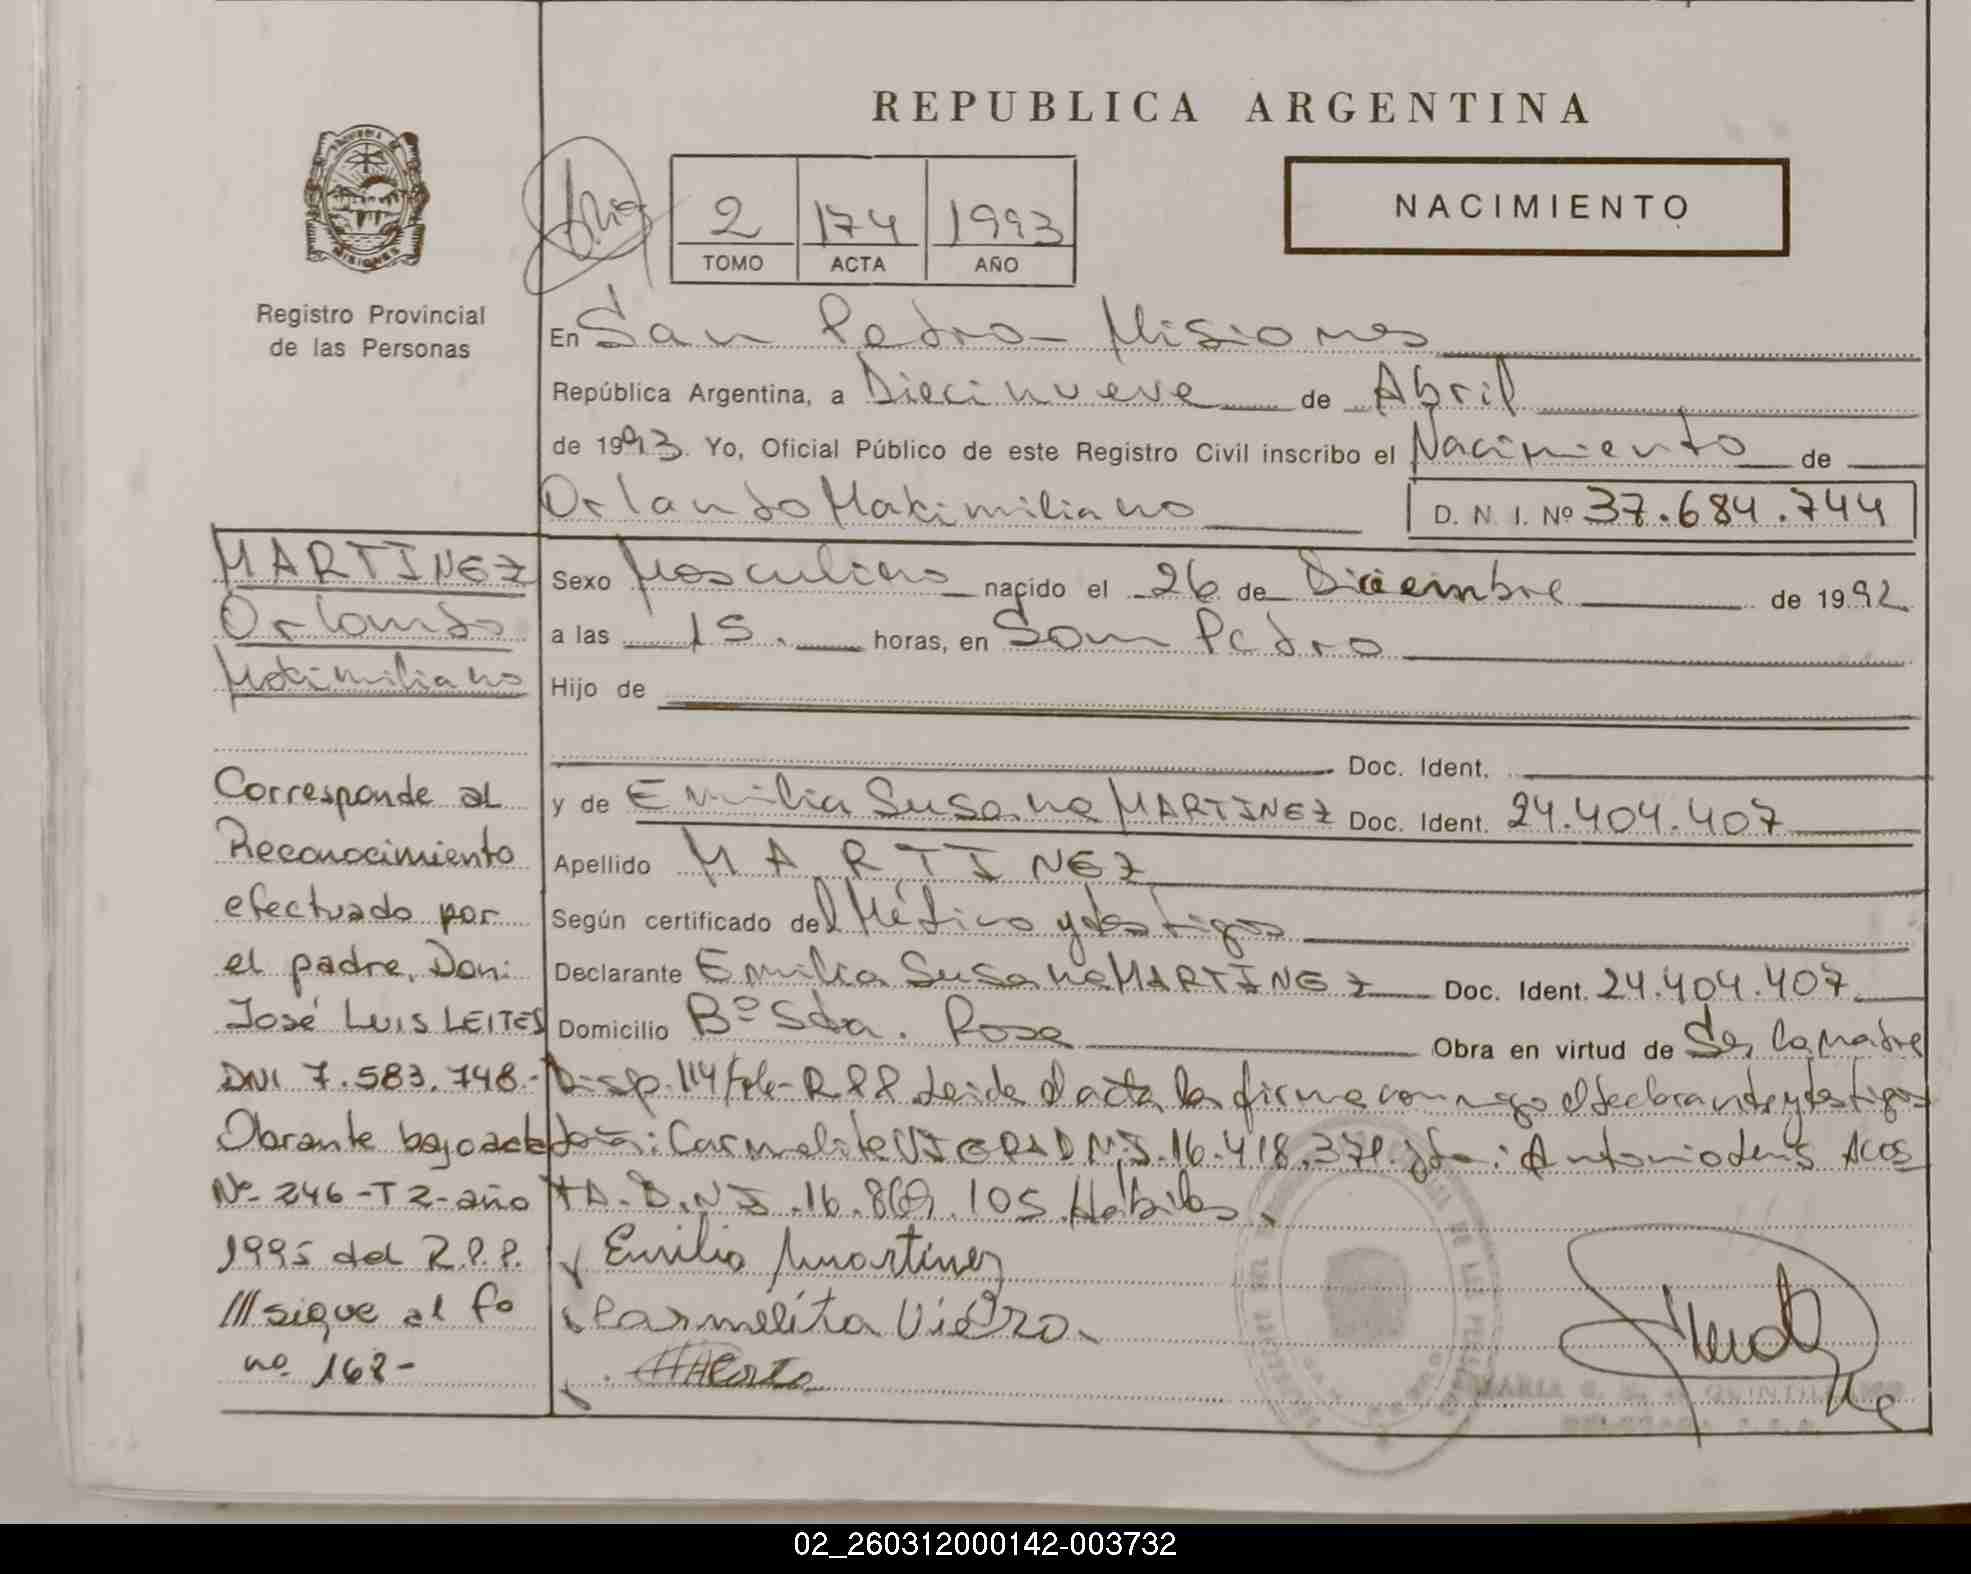 REPUBLICA ARGENTINA
NACIMIENTO
2 174 1993
TOMO ACTA AÑO
PROVINCIA DE
MISIONES
Registro Provincial
de las Personas
En San Pedro - Misiones
República Argentina, a Diecinueve de Abril
de 1993. Yo, Oficial Público de este Registro Civil inscribo el Nacimiento de
Orlando Maximiliano D. N. I. Nº 37.684.744
Sexo Masculino nacido el 26 de Diciembre de 1992
a las 15. horas, en San Pedro
Hijo de
Doc. Ident.
y de Emilia Susana MARTINEZ Doc. Ident. 24.404.407
Apellido MARTINEZ
Según certificado del Médico y testigos
Declarante Emilia Susana MARTINEZ Doc. Ident. 24.404.407
Domicilio Bº Sta. Rosa Obra en virtud de Ser la madre
Disp. 114/ R P P Leida el acta la firma conmigo el declarante y testigos
Doña: Carmelita VIERA D N I. 16.418.371. y Dn.: Antonio Acos
TA - D.N.I. 16.869.105. Hábiles.
Emilia Martinez
Carmelita Viera
MARTINEZ
Orlando
Maximiliano
Corresponde al
Reconocimiento
efectuado por
el padre, Don:
José LUIS LEITES
DNI 7.583.748.-
Obrante bajo acta
Nº 246-T2-año
1995 del R.P.P.
/// sigue al fo
nº 168-
02_260312000142-003732